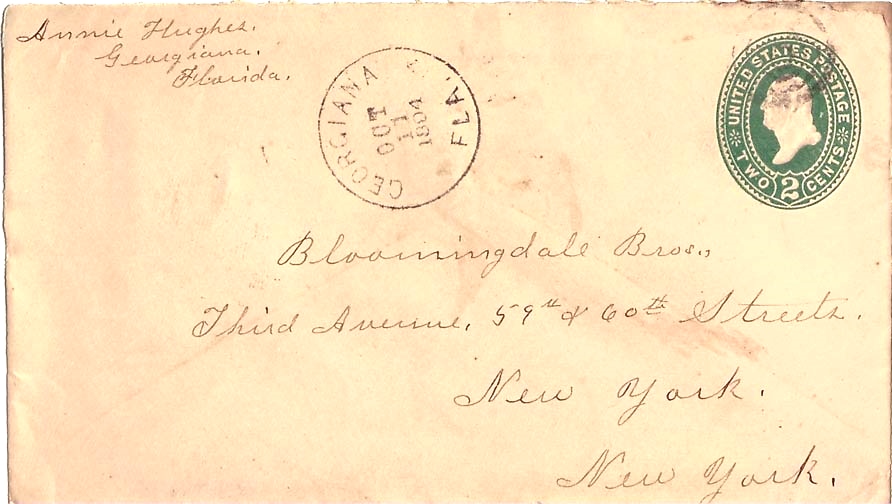 Annie Hughes.
Georgiana.
Florida.
GEORGIANA FLA.
OCT
11
1894
UNITED STATES POSTAGE
TWO 2 CENTS
Bloomingdale Bros.,
Third Avenue, 59th & 60th Streets.
New York.
New York.